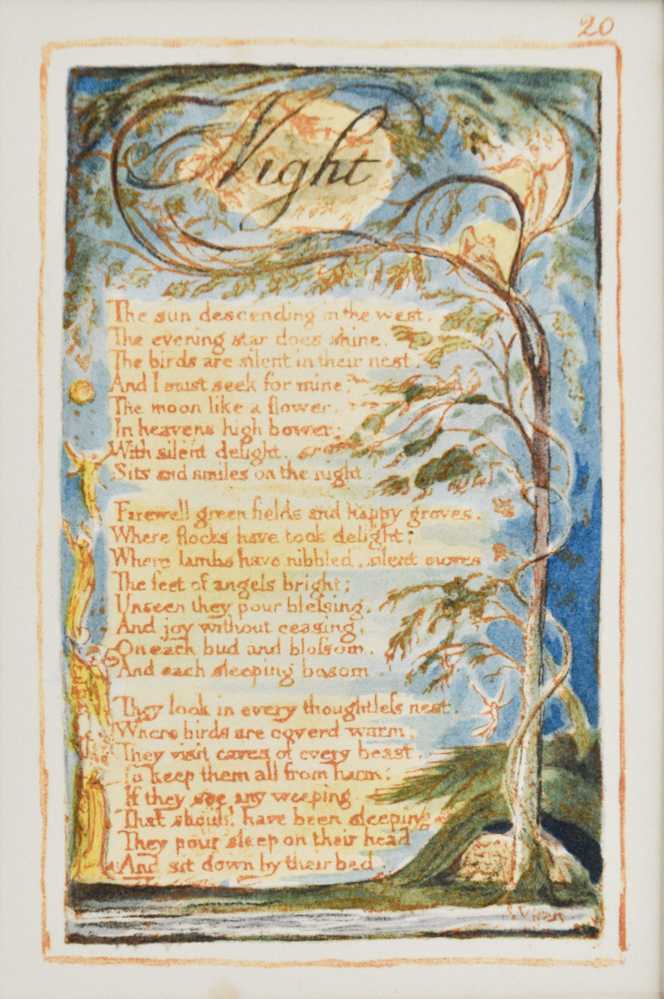 20
Night
The sun descending in the west.
The evening star does shine.
The birds are silent in their nest.
And I must seek for mine,
The moon like a flower,
In heavens high bower;
With silent delight
Sits and smiles on the night
Farewell green fields and happy groves,
Where flocks have took delight;
Where lambs have nibbled, silent moves
The feet of angels bright;
Unseen they pour blefsing,
And joy without ceasing,
On each bud and blofsom,
And each sleeping bosom
They look in every thoughtlefs nest.
Where birds are coverd warm.
They visit caves of every beast,
To keep them all from harm;
If they see any weeping
That should have been sleeping
They pour sleep on their head
And sit down by their bed.